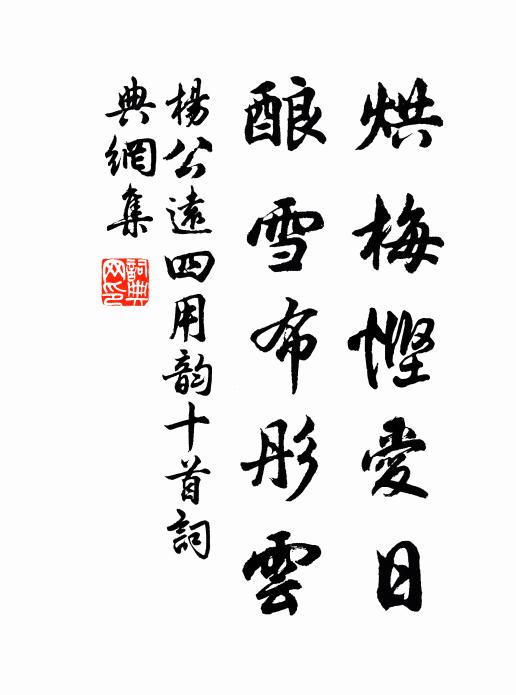 烘梅慳愛日
酿雪布彤雲
楊公遠四用韵十首詞
典網集
詞典
网印